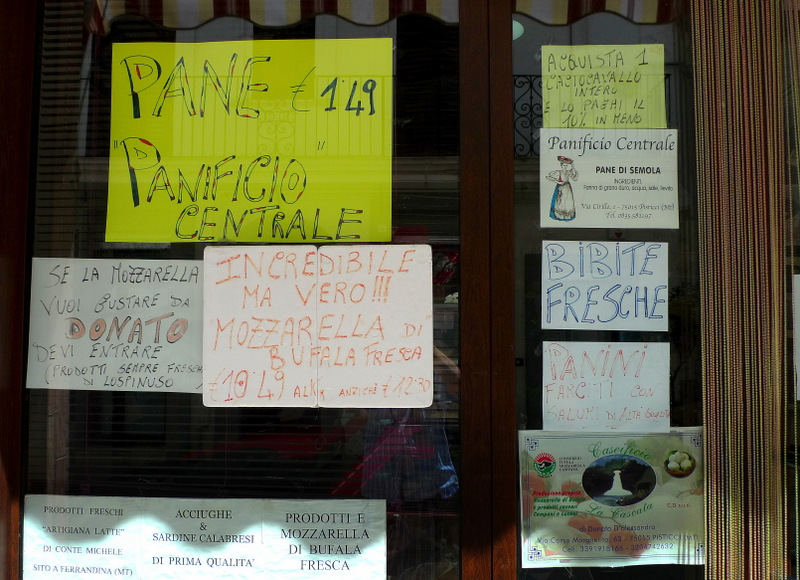 PANE € 1.49
"PANIFICIO"
CENTRALE
SE LA MOZZARELLA
VUOI GUSTARE DA
DONATO
DEVI ENTRARE
(PRODOTTI SEMPRE FRESCHI
DI LUSPINUSO
INCREDIBILE
MA VERO!!!
"MOZZARELLA DI
BUFALA FRESCA
€ 10.49 AL KG ANZICHÈ € 12.30
PRODOTTI FRESCHI
"ARTIGIANA LATTE"
DI CONTE MICHELE
SITO A FERRANDINA (MT)
ACCIUGHE
&
SARDINE CALABRESI
DI PRIMA QUALITA'
PRODOTTI E
MOZZARELLA
DI BUFALA
FRESCA
ACQUISTA 1
CACIOCAVALLO
INTERO
E LO PAGHI IL
10% IN MENO
Panificio Centrale
PANE DI SEMOLA
INGREDIENTI:
Farina di grano duro, acqua, sale, lievito
Via Cirillo, 2 - 75015 Pisticci (Mt)
Tel. 0835 582197
BIBITE
FRESCHE
PANINI
FARCITI CON
SALUMI DI ALTA QUALITÀ
Caseificio
La Cascata
di Donato D'Alessandro
Via Corso Margherita, 63 - 75015 PISTICCI (MT)
Cell. 3391918165 - 3204742632